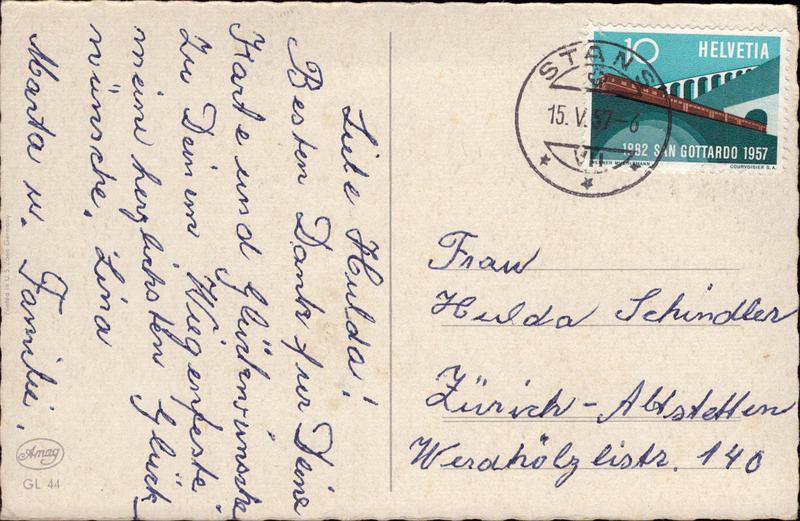 Liebe Hulda!
Besten Dank für Deine
Karte und Glückwünsche
Zu Deinem Wiegenfeste
meine herzlichsten Glück
wünsche, Lina
Marta u. Familie.
Amag
GL 44
STANS
15. V. 57-6
VII
10 HELVETIA
1882 SAN GOTTARDO 1957
COURVOISIER S.A.
Frau
Hulda Schindler
Zürich-Altstetten
Werdhölzlistr. 140